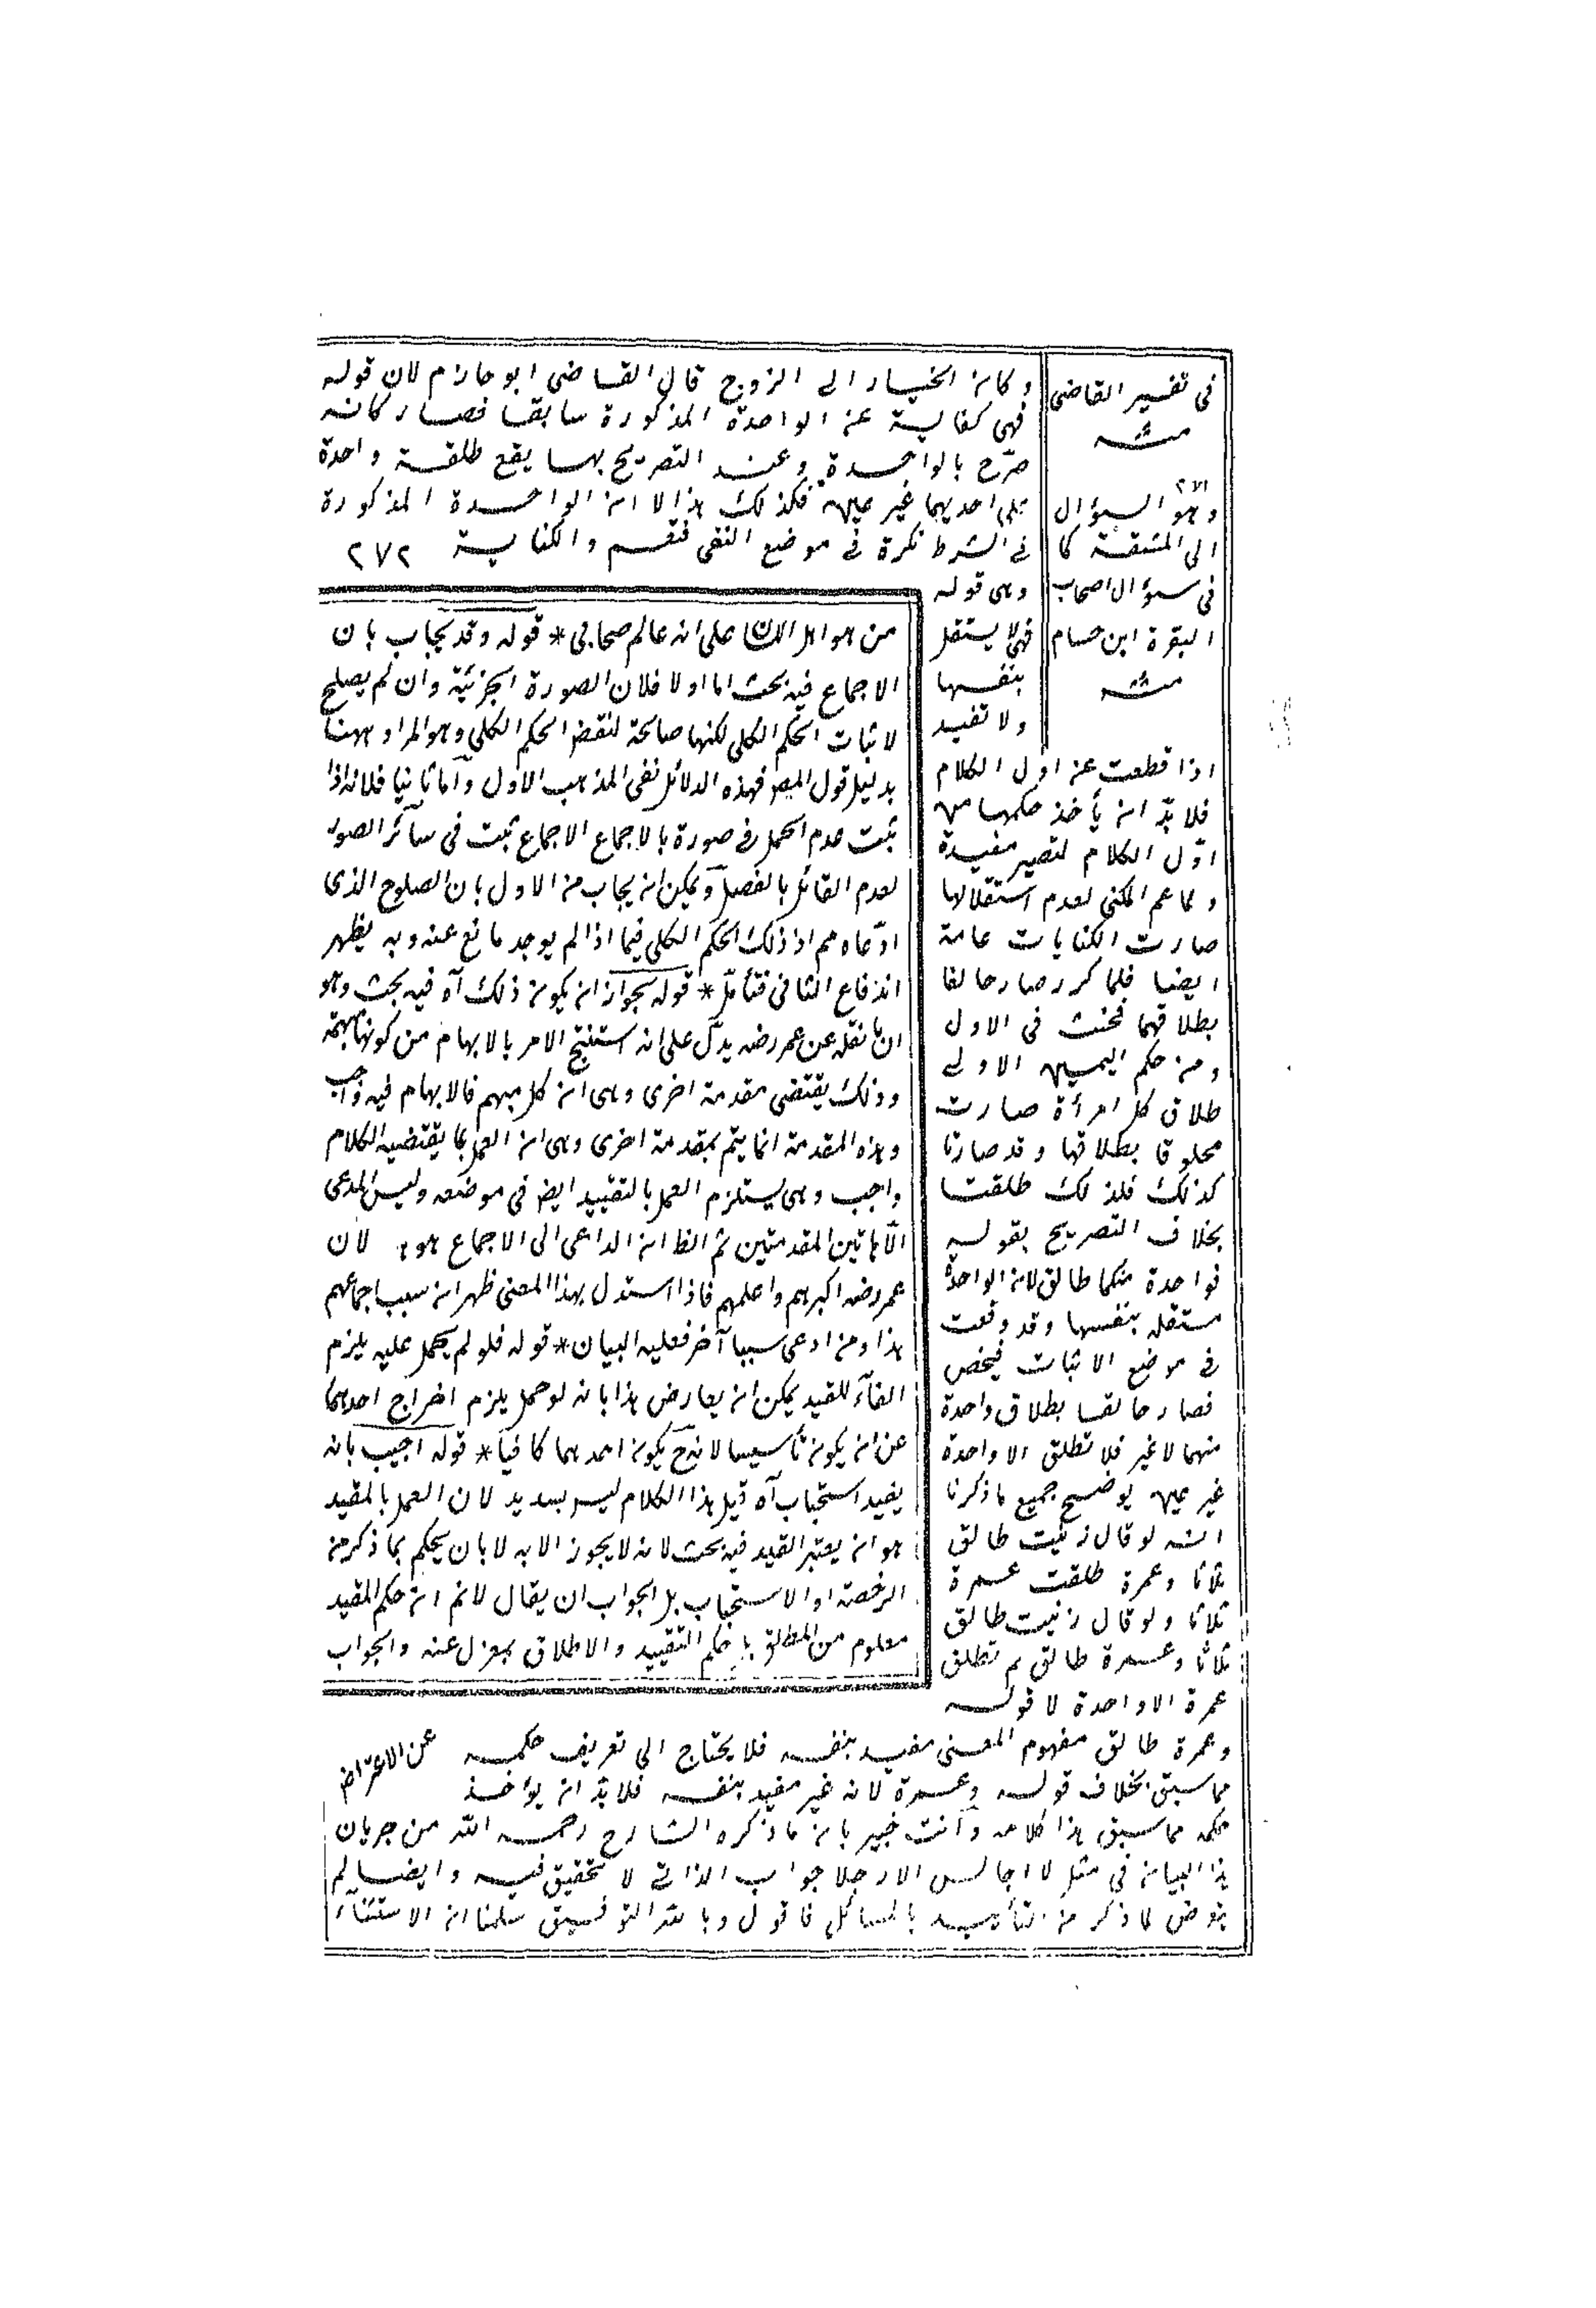 وكان الخيار الى الزوج قال القاضى ابو حازم لان قوله
فهى كناية عن الواحدة المذكورة سابقا فصار كانه
صرّح بالواحدة وعند التصريح بها يقع طلقة واحدة
على احديهما غير عين فكذلك هذا لا ان الواحدة المذكورة
فى الشرط نكرة فى موضع النفى فتعم والكناية ٢٧٢
وهى قوله
فهى لا يستقل
بنفسها
ولا تفيد
اذا قطعت عن اول الكلام
فلا بدّ ان يأخذ حكمها من
اوّل الكلام لتصير مفيدة
ولما عم المكنى لعدم استقلالها
صارت الكنايات عامة
ايضا فلما كرر صار حالفا
بطلاقهما فحنث فى الاول
ومن حكم اليمين الاولى
طلاق كل امرأة صارت
محلوفا بطلاقها وقد صارتا
كذلك فلذلك طلقتا
بخلاف التصريح بقوله
فواحدة منكما طالق لان الواحدة
مستقله بنفسها وقد وقعت
فى موضع الاثبات فيخص
فصار حالفا بطلاق واحدة
منهما لا غير فلا تطلق الا واحدة
غير عين يوضح جميع ما ذكرنا
انه لو قال زنيت طالق
ثلاثا وعمرة طلقت عمرة
ثلاثا ولو قال زنيت طالق
ثلاثا وعمرة طالق لم تطلق
عمرة الا واحدة لا قوله
وعمرة طالق مفهوم المعنى مفيد بنفسه فلا يحتاج الى تعريف حكمه
مما سبق بخلاف قوله وعمرة لانه غير مفيد بنفسه فلا بدّ ان يؤخذ
حكمه مما سبق هذا كلامه وأنت خبير بان ما ذكره الشارح رحمه الله من جريان
هذا البيان فى مثل لا اجالس الا رجلا جواب الذاتى لا تحقيق فيه وايضا لم
يتعرض لما ذكر من التأييد بالمسائل فاقول وبالله التوفيق سلمنا ان الاستثنآء
فى تفسير القاضى
منه
وهو السؤال
الى المشقة كما
فى سؤال اصحاب
البقرة ابن حسام
منه
من هو اهل اللسان على انه عالم صحابى * قوله وقد يجاب بان
الاجماع فيه بحث اما اولا فلان الصورة الجزئية وان لم يصلح
لاثبات الحكم الكلى لكنها صالحة لنقض الحكم الكلى وهو المراد ههنا
بدليل قول المص فهذه الدلائل نفى المذهب الاول وأما ثانيا فلانه اذا
ثبت عدم الحمل فى صورة بالاجماع الاجماع ثبت فى سائر الصور
لعدم القائل بالفصل ويمكن ان يجاب من الاول بان الصلوح الذى
ادّعاه مم اذ ذلك الحكم الكلى فيما اذا لم يوجد مانع عنه وبه يظهر
اندفاع الثانى فتأمّل * قوله بجواز ان يكون ذلك آه فيه بحث وهو
ان ما نقله عن عمر رضه يدلّ على انه استنتج الامر بالابهام من كونها مبهمة
وذلك يقتضى مقدمة اخرى وهى ان كل مبهم فالابهام فيه واجب
وهذه المقدمة انما يتم بمقدمة اخرى وهى ان العمل بما يقتضيه الكلام
واجب وهى يستلزم العمل بالتقييد ايض فى موضعه وليس المدعى
الّا هاتين المقدمتين ثم الظ ان الداعى الى الاجماع هو لان
عمر رضه اكبرهم واعلمهم فاذا استدل بهذا المعنى ظهر ان سبب اجماعهم
هذا ومن ادعى سببا آخر فعليه البيان * قوله فلو لم يحمل عليه يلزم
الغآء للقيد يمكن ان يعارض هذا بانه لو حمل يلزم اخراج احدهما
عن ان يكون تأسيسا لانه ح يكون احدهما كافيا * قوله اجيب بانه
يفيد استحباب آه قيل هذا الكلام ليس بسديد لان العمل بالمقيد
هو ان يعتبر القيد فيه بحث لانه لا يجوز الا به لا بان يحكم بما ذكر من
الرخصة او الاستحباب بل الجواب ان يقال لانم ان حكم المقيد
معلوم من المطلق بل حكم التقييد والاطلاق بمعزل عنه والجواب
عن الاعتراض